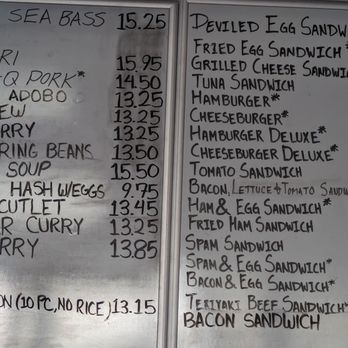 SEA BASS 15.25
RI 15.95
Q PORK* 14.50
ADOBO 13.25
EW 13.25
RRY 13.25
RING BEANS 13.50
SOUP 15.50
HASH W/EGGS 9.75
CUTLET 13.45
R CURRY 13.25
RRY 13.85
ON (10 PC, NO RICE) 13.15
DEVILED EGG SANDW
FRIED EGG SANDWICH*
GRILLED CHEESE SANDWIC
TUNA SANDWICH
HAMBURGER*
CHEESEBURGER*
HAMBURGER DELUXE*
CHEESEBURGER DELUXE*
TOMATO SANDWICH
BACON, LETTUCE & TOMATO SANDW
HAM & EGG SANDWICH*
FRIED HAM SANDWICH
SPAM SANDWICH
SPAM & EGG SANDWICH*
BACON & EGG SANDWICH*
TERIYAKI BEEF SANDWICH*
BACON SANDWICH